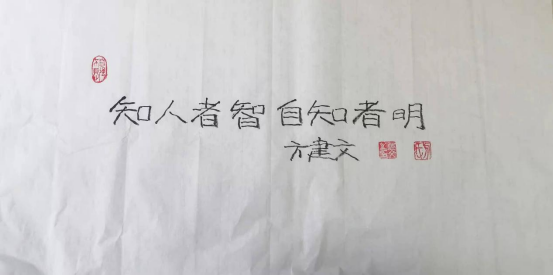 知人者智自知者明
方建文